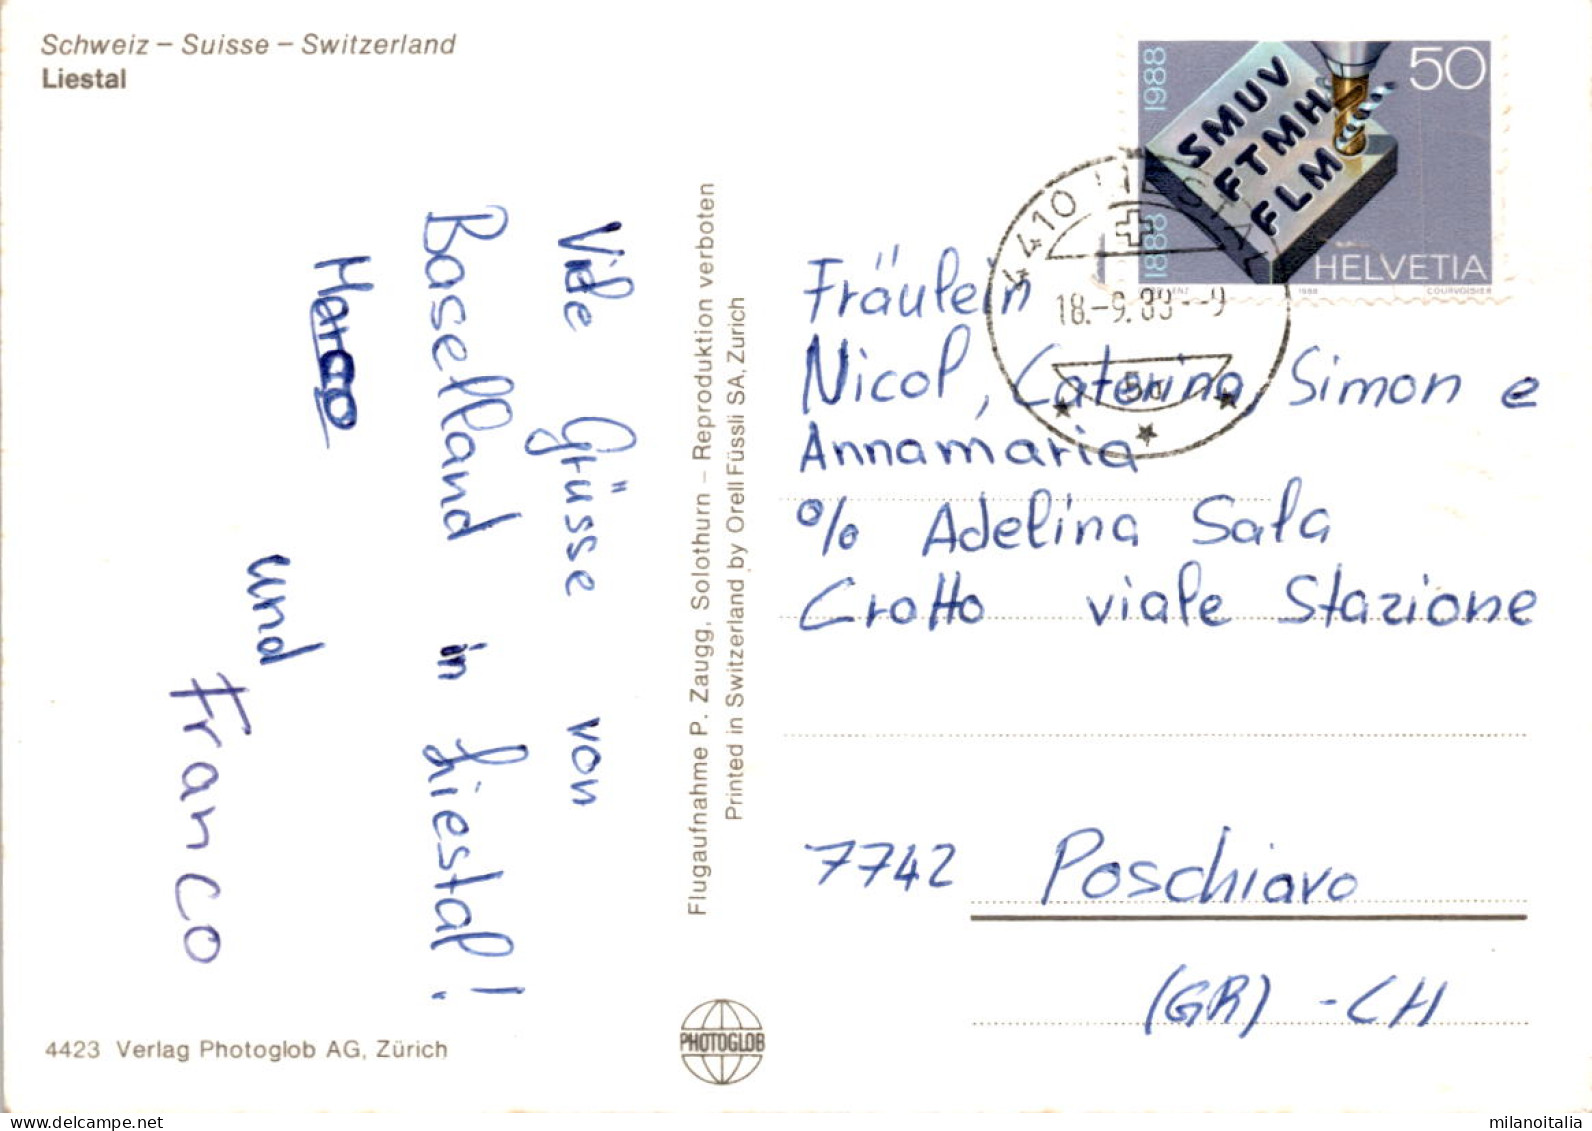 Schweiz – Suisse – Switzerland
Liestal
1888 1988
50
SMUV
FTMH
FLM
HELVETIA
1988
COURVOISIER
4410 LIESTAL
18.-9.89--9
Viele Grüsse von
Baselland in Liestal!
Marco
und
Franco
Flugaufnahme P. Zaugg, Solothurn – Reproduktion verboten
Printed in Switzerland by Orell Füssli SA, Zurich
Fräulein
Nicol, Caterina Simon e
Annamaria
% Adelina Sala
Crotto viale Stazione
7742 Poschiavo
(GR) - CH
4423 Verlag Photoglob AG, Zürich
PHOTOGLOB
milanoitalia